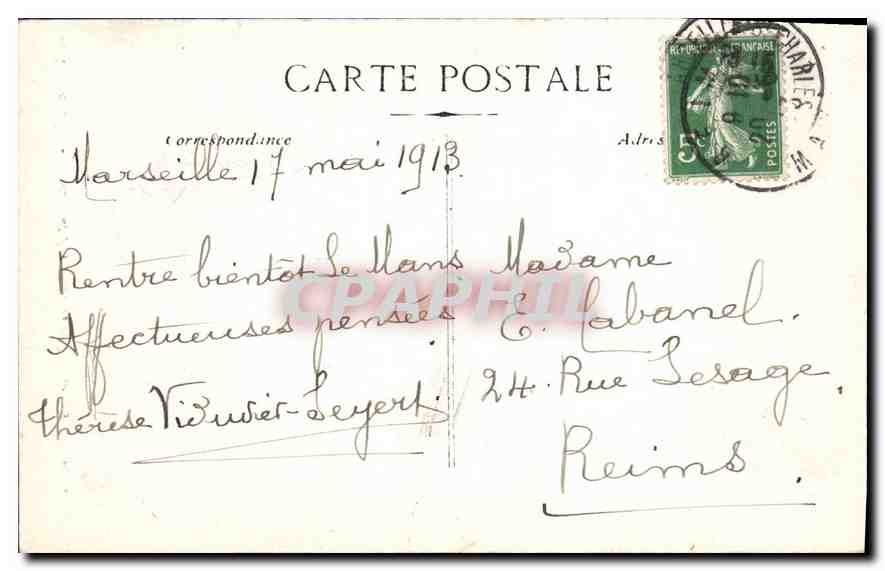 CARTE POSTALE
Correspondance
Marseille 17 mai 1913
Rentre bientôt Le Mans
Affectueuses pensées
Thérèse
Adres
RÉPUBLIQUE FRANÇAISE
5c
POSTES
Madame
E. Cabanel.
24. Rue Lesage.
Reims.
CPAPHIL